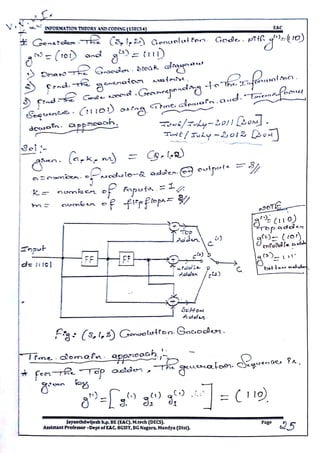 INFORMATION THEORY AND CODING (15EC54) E&C
* Consider The (3,1,2) Convolution Code with g(1) = (110)
g(2) = (101) and g(3) = (111)
1) Draw The Encoder block diagram
2) Find The generator matrix.
3) Find The Code word Corresponding to The Information
Sequence (11101) using Time domain and Transform
domain approach.
June/July-2011 [20M].
June/July-2012 [20M]
Sol:-
given. (n,k,m) = (3,1,2)
n = number of modulo-2 adders (or) outputs = 3//
k = number of inputs = 1//
m = number of flipflops = 2//
NOTE
g(1) = (110)
Top adder
g(2) = (101)
middle adder
g(3) = 111
bottom adder
Top
Adder
C(1)
Input
d = 11101
FF
FF
C(2)
middle
Adder
C(3)
C
Bottom
Adder
Fig: (3,1,2) Convolution Encoder.
Time domain approach:-
* For The Top adder, The generator Sequence is,
given by
g(1) = [g(1) g(1) g(1)] = (110).
Jayanthdwijesh h.p. BE (E&C), M.tech (DECS).
Assistant Professor - Dept of E&C, BGSIT, BG Nagara, Mandya (Dist).
Page 25